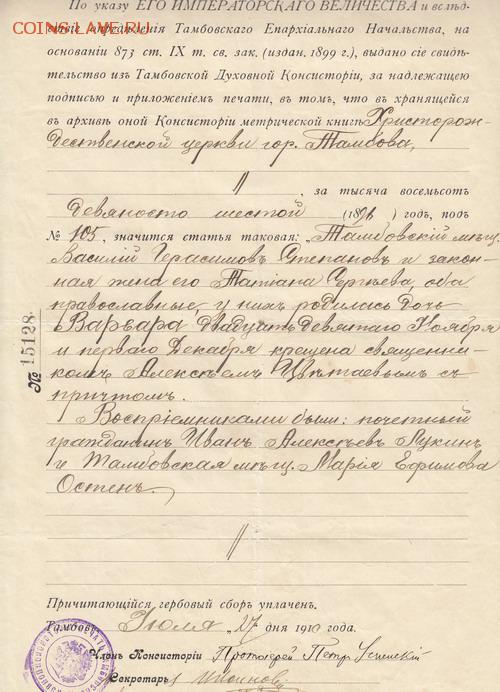 COINS.LAVE.RU
По указу ЕГО ИМПЕРАТОРСКАГО ВЕЛИЧЕСТВА и вслѣд-
ствіе опредѣленія Тамбовскаго Епархіальнаго Начальства, на
основаніи 873 ст. IX т. св. зак. (издан. 1899 г.), выдано сіе свидѣ-
тельство изъ Тамбовской Духовной Консисторіи, за надлежащею
подписью и приложеніемъ печати, въ томъ, что въ хранящейся
въ архивѣ оной Консисторіи метрической книгѣ Христорож-
дественской церкви гор. Тамбова,
//
, за тысяча восемьсотъ
девяносто шестой (1896) годъ, подъ
№ 105, значится статья таковая: „Тамбовскій мѣщ.
Василій Герасимовъ Степановъ и закон-
ная жена его Татіана Сергѣева, оба
православные, у нихъ родилась дочь
Варвара двадцать девятаго Ноября
и перваго Декабря крещена священни-
комъ Алексѣемъ Цвѣтаевымъ съ
причтомъ.
Воспріемниками были: почетный
гражданинъ Иванъ Алексѣевъ Лукинъ
и Тамбовская мѣщ. Марія Ефимова
Остенъ.
//
№ 15128
Причитающійся гербовый сборъ уплаченъ.
Тамбовъ, Іюля „27 дня 1910 года.
Членъ Консисторіи Протоіерей Петръ Успенскій
Секретарь